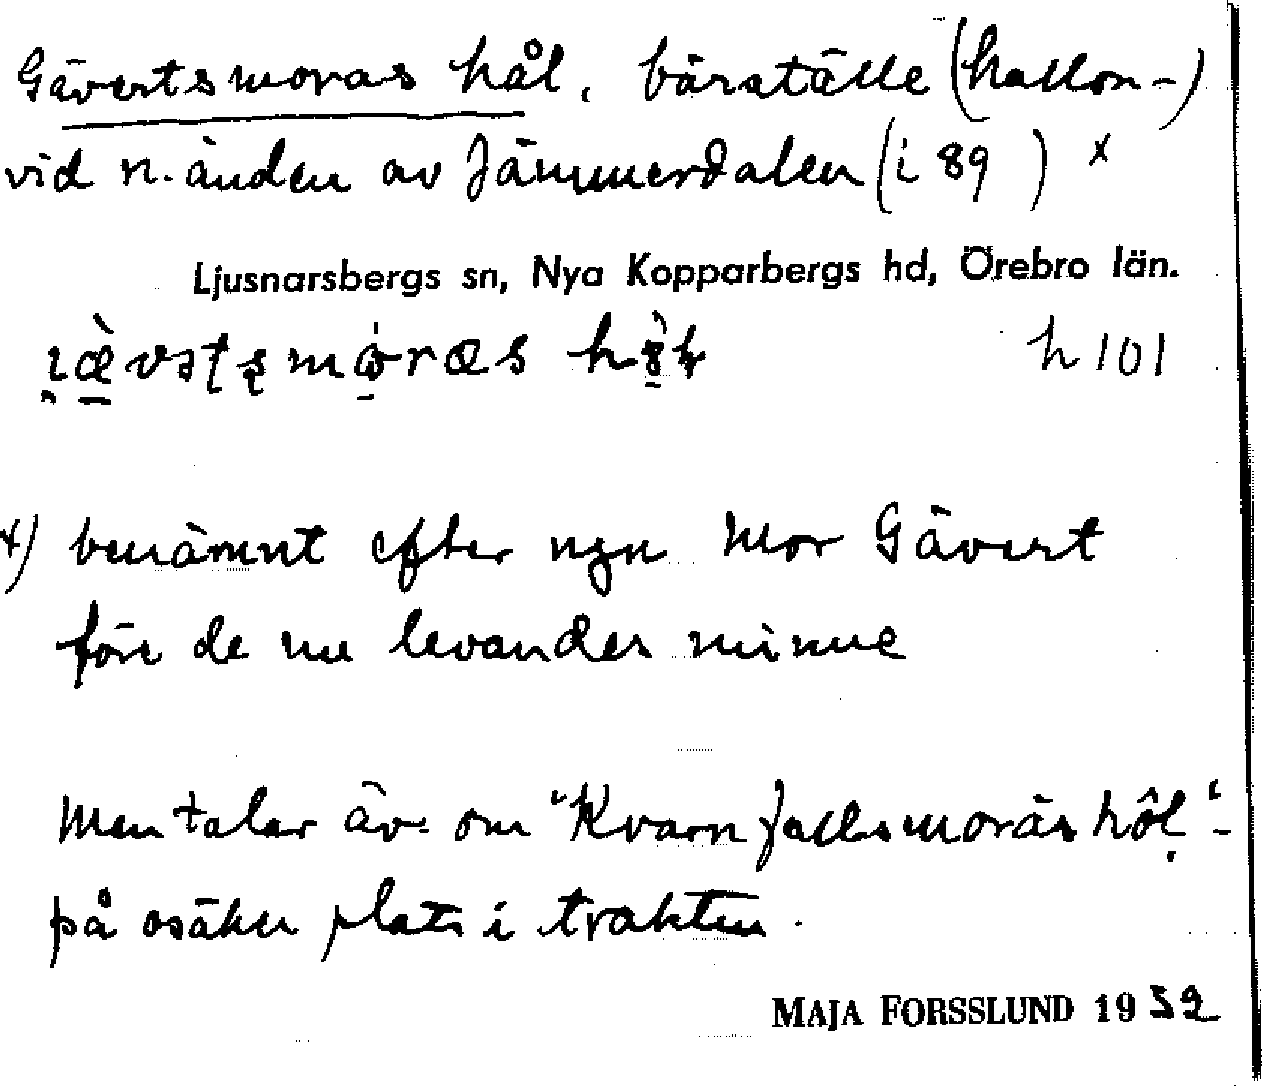 Gävertsmoras hål, bärställe (hallon-)
vid n. änden av Jämmerdalen (i 89 ) x
Ljusnarsbergs sn, Nya Kopparbergs hd, Örebro län.
h 101
x) benämnt efter ngn Mor Gävert
före de nu levandes minne
Men talar äv. om "Kvarnfallsmorås hôl" -
på osäker plats i trakten.
MAJA FORSSLUND 1932